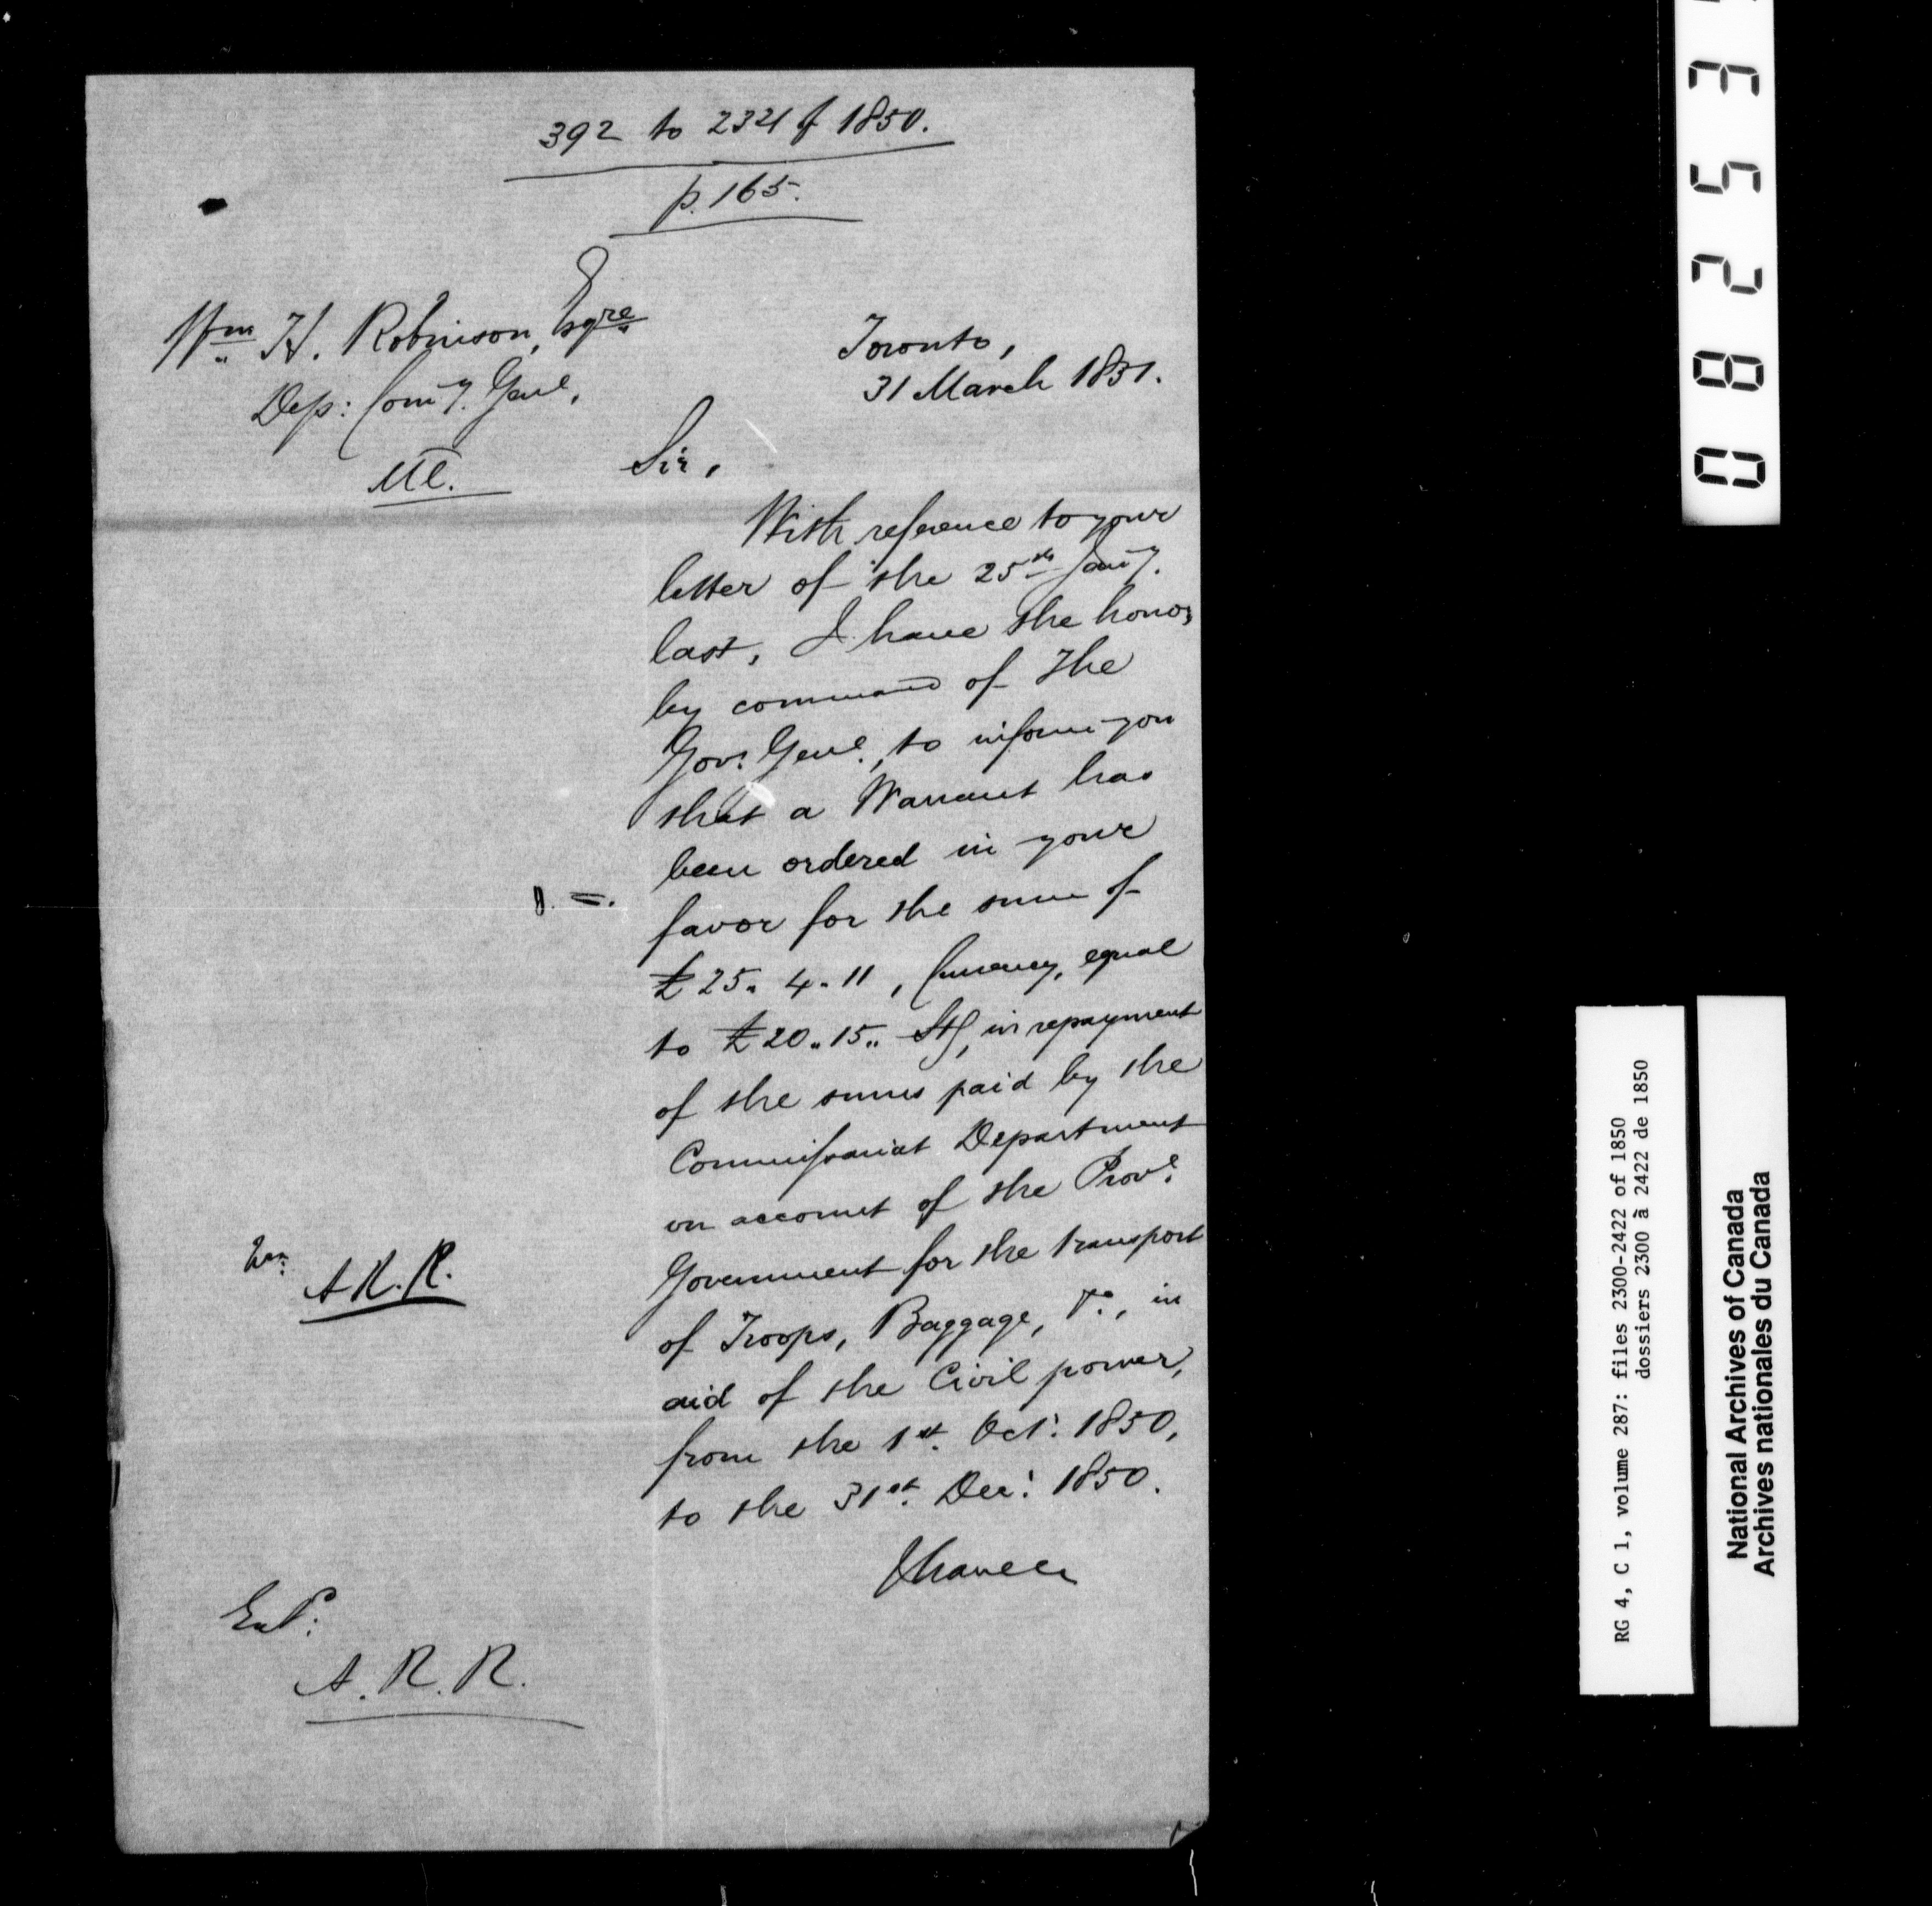 392 to 2321 of 1850.
p. 165.
Wm H. Robinson, Esqre
Dep: Comy. Genl.
Toronto,
31 March 1851.
Ml.
Sir,
With reference to your
letter of the 25th Jany.
last, I have the honor,
by command of The
Govr. Genl., to inform you
that a Warrant has
been ordered in your
favor for the sum of
£25. 4. 11, Currency, equal
to £20.. 15.. Stg, in repayment
of the sums paid by the
Commissariat Department
on account of the Provl.
Government for the transport
of Troops, Baggage, &c., in
aid of the Civil power,
from the 1st. Octr. 1850,
to the 31st. Decr. 1850.
I have &c
A.R.R.
Entd.
A. R. R.
0 8 2 5 3
RG 4, C 1, volume 287: files 2300-2422 of 1850
dossiers 2300 à 2422 de 1850
National Archives of Canada
Archives nationales du Canada